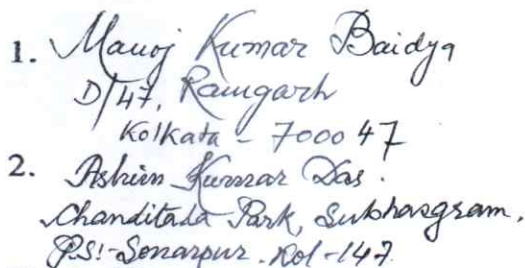 1. Manoj Kumar Baidya
D/47, Ramgarh
Kolkata - 700047
2. Ashim Kumar Das.
Chanditala Park, Subhasgram,
P.S:- Sonarpur. Kol-147.